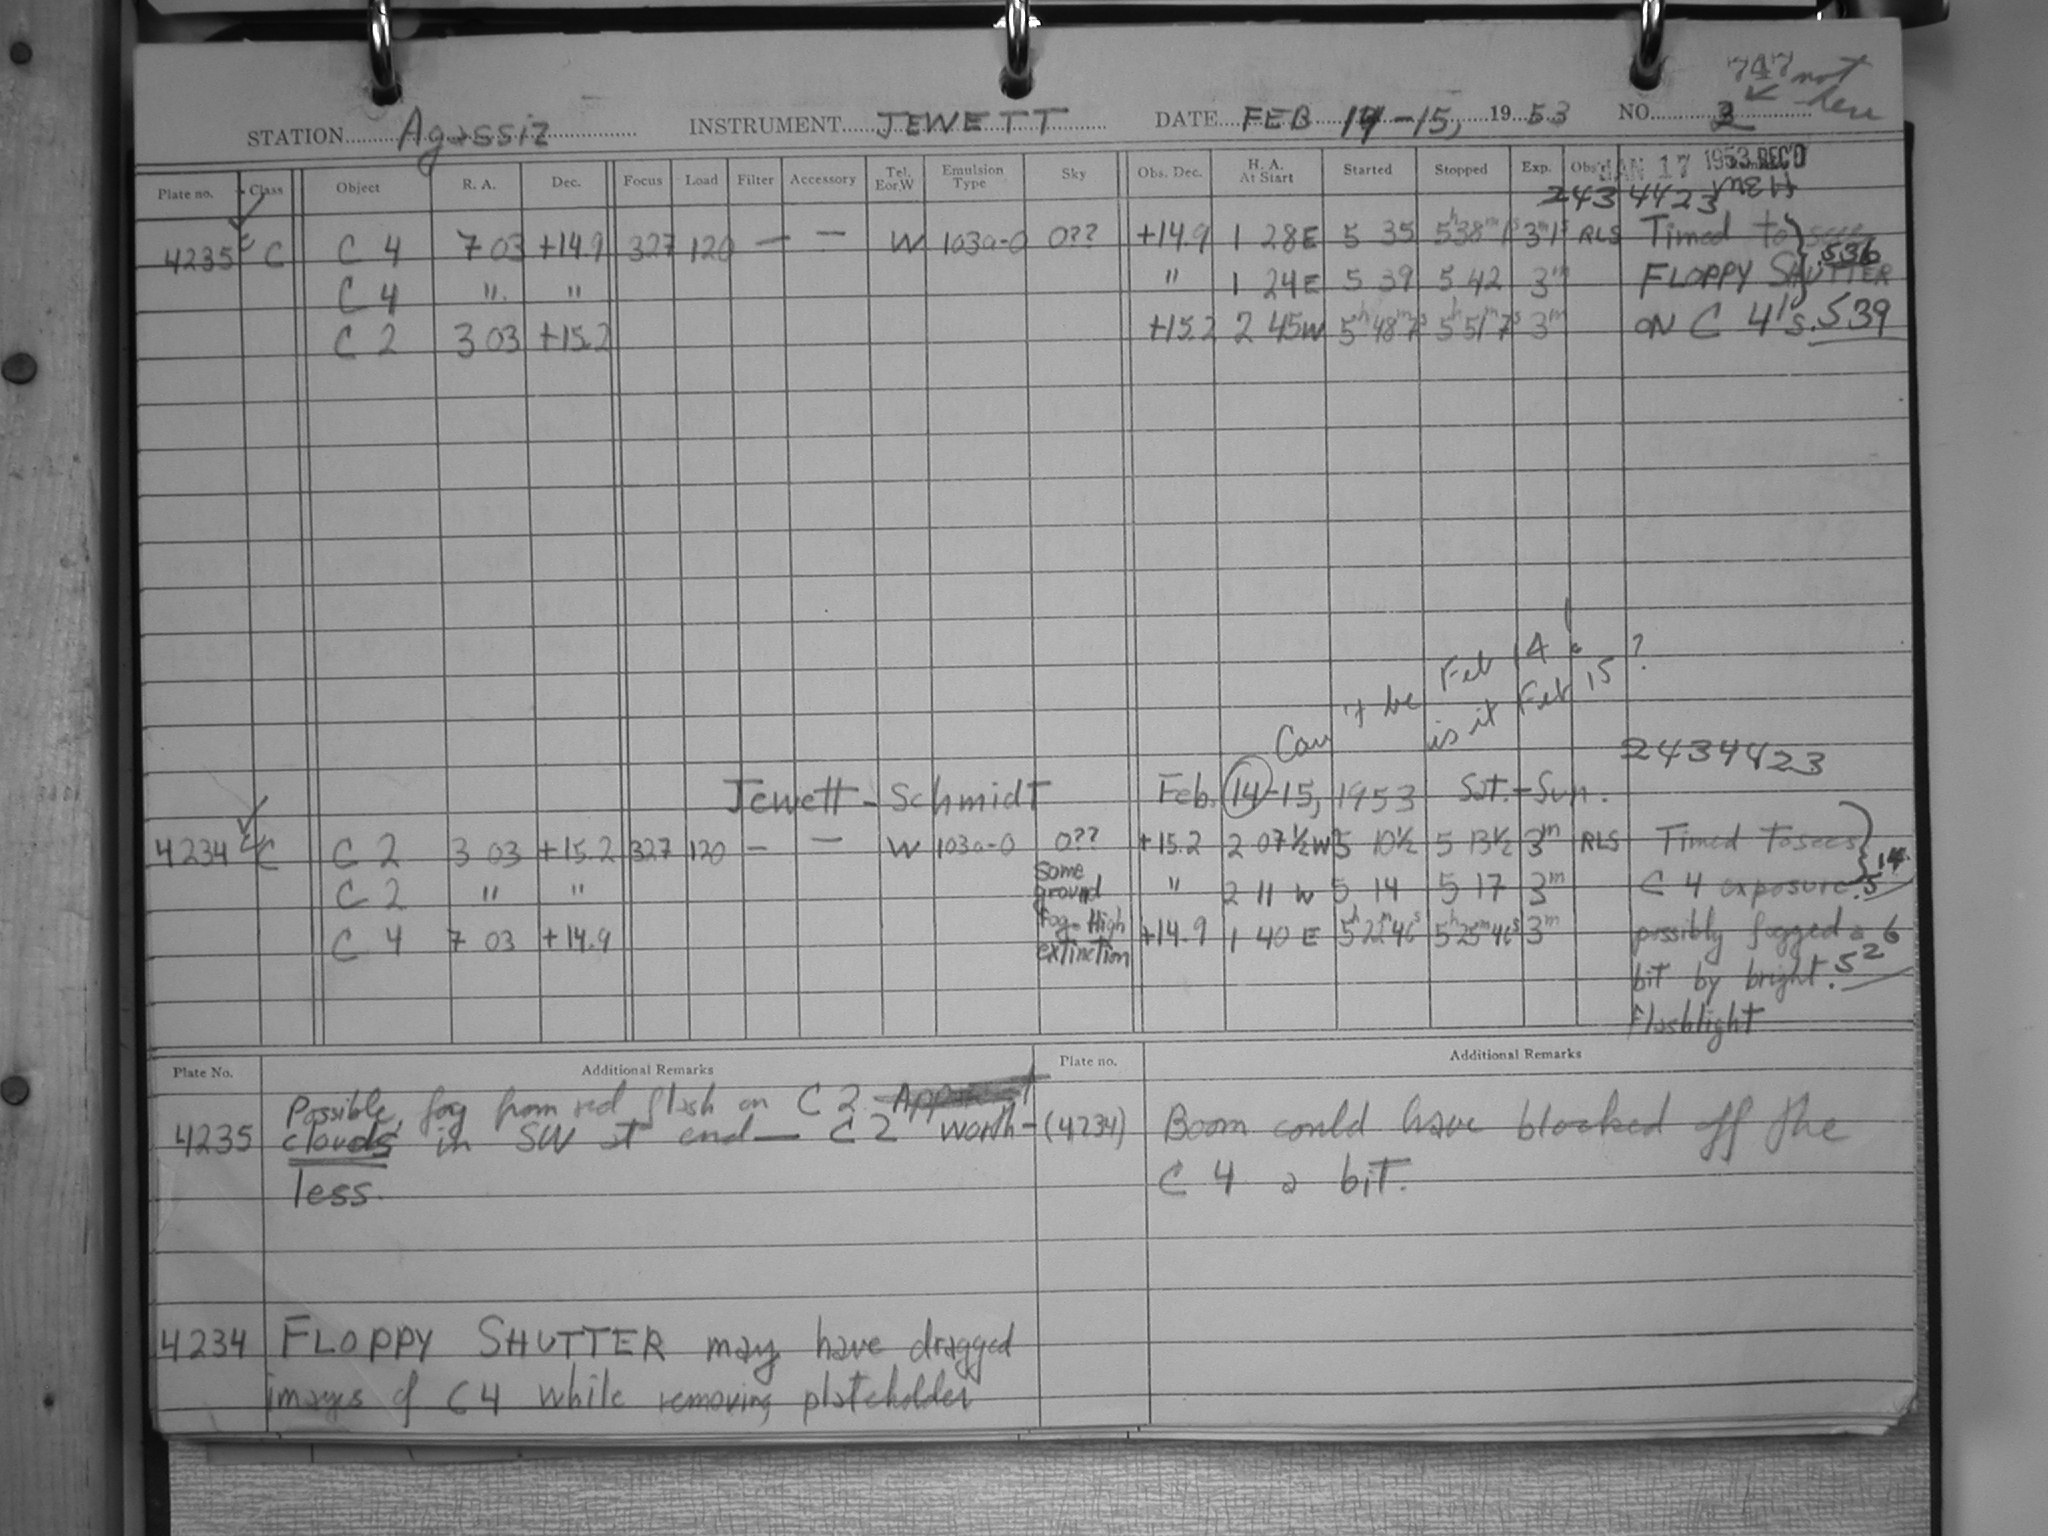 747 not
here
STATION Agassiz INSTRUMENT JEWETT DATE FEB 14-15, 1953 NO. 3
Plate no. Class Object R. A. Dec. Focus Load Filter Accessory Tel. E or W Emulsion Type Sky Obs. Dec. H. A. At Start Started Stopped Exp. Obs'r
JAN 17 1953 REC'D
2434423
4235 C C 4 7 03 +14.9 327 120 — — W 103a-O 0?? +14.9 1 28E 5 35 5h38m1s 3m1s RLS Timed to secs 536
C 4 " " " 1 24E 5 39 5 42 3m FLOPPY SHUTTER
C 2 3 03 +15.2 +15.2 2 45W 5h48m7s 5h51m7s 3m ON C 4's. 539
Can't be Feb 14
is it Feb 15 ?
2434423
Jewett-Schmidt Feb. 14-15, 1953 Sat.-Sun.
4234 C C 2 3 03 +15.2 327 120 — — W 103a-O 0?? +15.2 2 07½W 5 10½ 5 13½ 3m RLS Timed to secs
C 2 " " some ground " 2 11 W 5 14 5 17 3m C 4 exposure 5 14
C 4 7 03 +14.9 fog-High extinction +14.9 1 40 E 5h22m46s 5h25m46s 3m possibly fogged a
bit by bright. 5 26
Flashlight
Plate No. Additional Remarks Plate no. Additional Remarks
4235 Possible fog from red flash on C 2
clouds in SW at end — C 2 worth-
less.
(4234) Boom could have blocked off the
C 4 a bit.
4234 FLOPPY SHUTTER may have dragged
images of C4 while removing plateholder